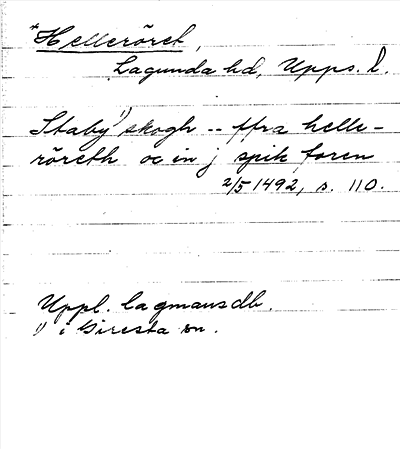 *Helleröret,
Lagunda hd, Upps. l.
Staby 1) skogh -- ffra helle-
röreth oc in j spik foren
2/5 1492, s. 110.
Uppl. lagmansdb.
1) i Giresta sn.